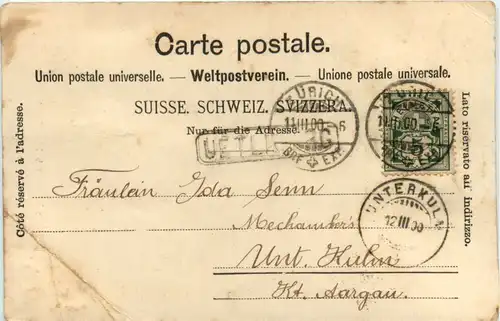 Carte postale.
Union postale universelle. — Weltpostverein. — Unione postale universale.
SUISSE. SCHWEIZ. SVIZZERA.
Nur für die Adresse.
Côté réservé à l'adresse.
Lato riservato all' indirizzo.
ZÜRICH
11.III.00. - 6
BRF. EXP.
11.III.00. - 6
UNTERKULM
12 III 00
Fräulein Ida Senn
Mechanikers
Unt. Kulm
Kt. Aargau.